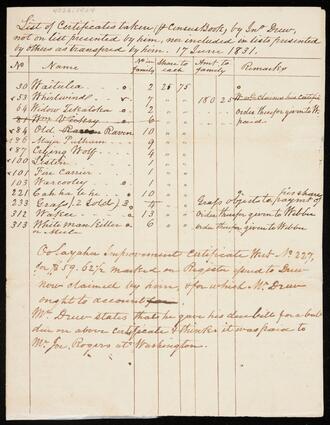 List of Certificates taken (& Census Book) by Jno. Drew,
not on list presented by him, nor included on lists presented
by others as transfered by him. 17 June 1831.
No Name No in family Share to each Amt. to family Remarks
30 Waitulea 2 25 75
53 Whirlwind 7 180 25 claims has certif
64 Widow 2 order therefor given to W
81 2 paid
84 Old Raven 10
86 Majr Pulham 9
87 Crying Wolf 4
100 Lister 1
101 Fire Carrier 1
103 Warcooley 2
221 Cah ha te he 10
233 Grass, 2 Sold 3 4 Grass obje to payt of his share
312 Wakee 13 Order therefor given to Webber
313 White man Killer 6 order therefor given to Webber
or Mule
Oolayaha Improvement Certificate Wart No 227,
for $59.62½ marked on Register pened to Drew
now claimed by him, & for which Mr Drew
ought to account
Mr Drew states that he gave his due bill for a bal
due on above certificate & thinks it was paid to
Mr Jos. Rogers at Washington.